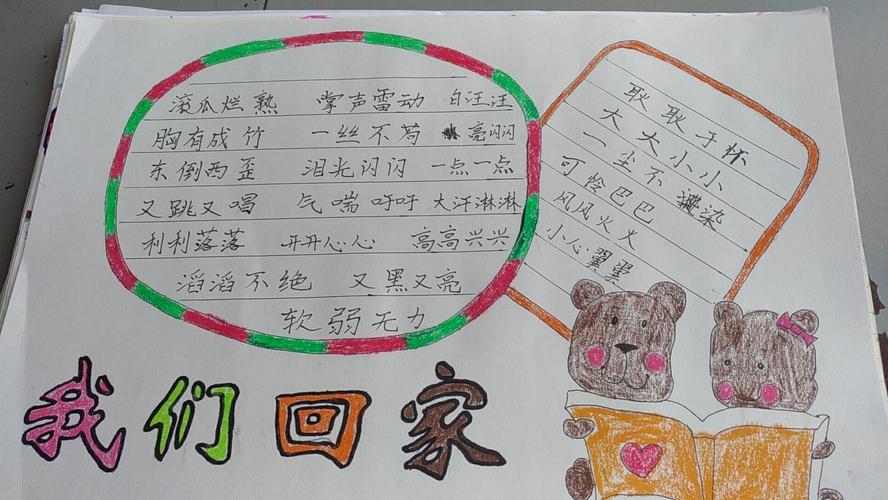 滚瓜烂熟 掌声雷动 白汪汪
胸有成竹 一丝不苟 亮闪闪
东倒西歪 泪光闪闪 一点一点
又跳又唱 气喘吁吁 大汗淋淋
利利落落 开开心心 高高兴兴
滔滔不绝 又黑又亮
软弱无力
耿耿于怀
大大小小
一尘不染
可怜巴巴
风风火火
小心翼翼
我们回家